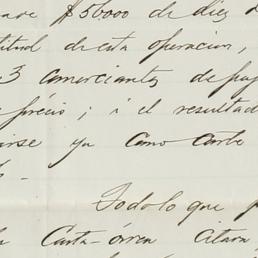 $56000 de diez
titud de esta operacion,
3 comerciantes de
precio; i el resultad
irse ya como carte
Todo lo que
Carta-órden citada